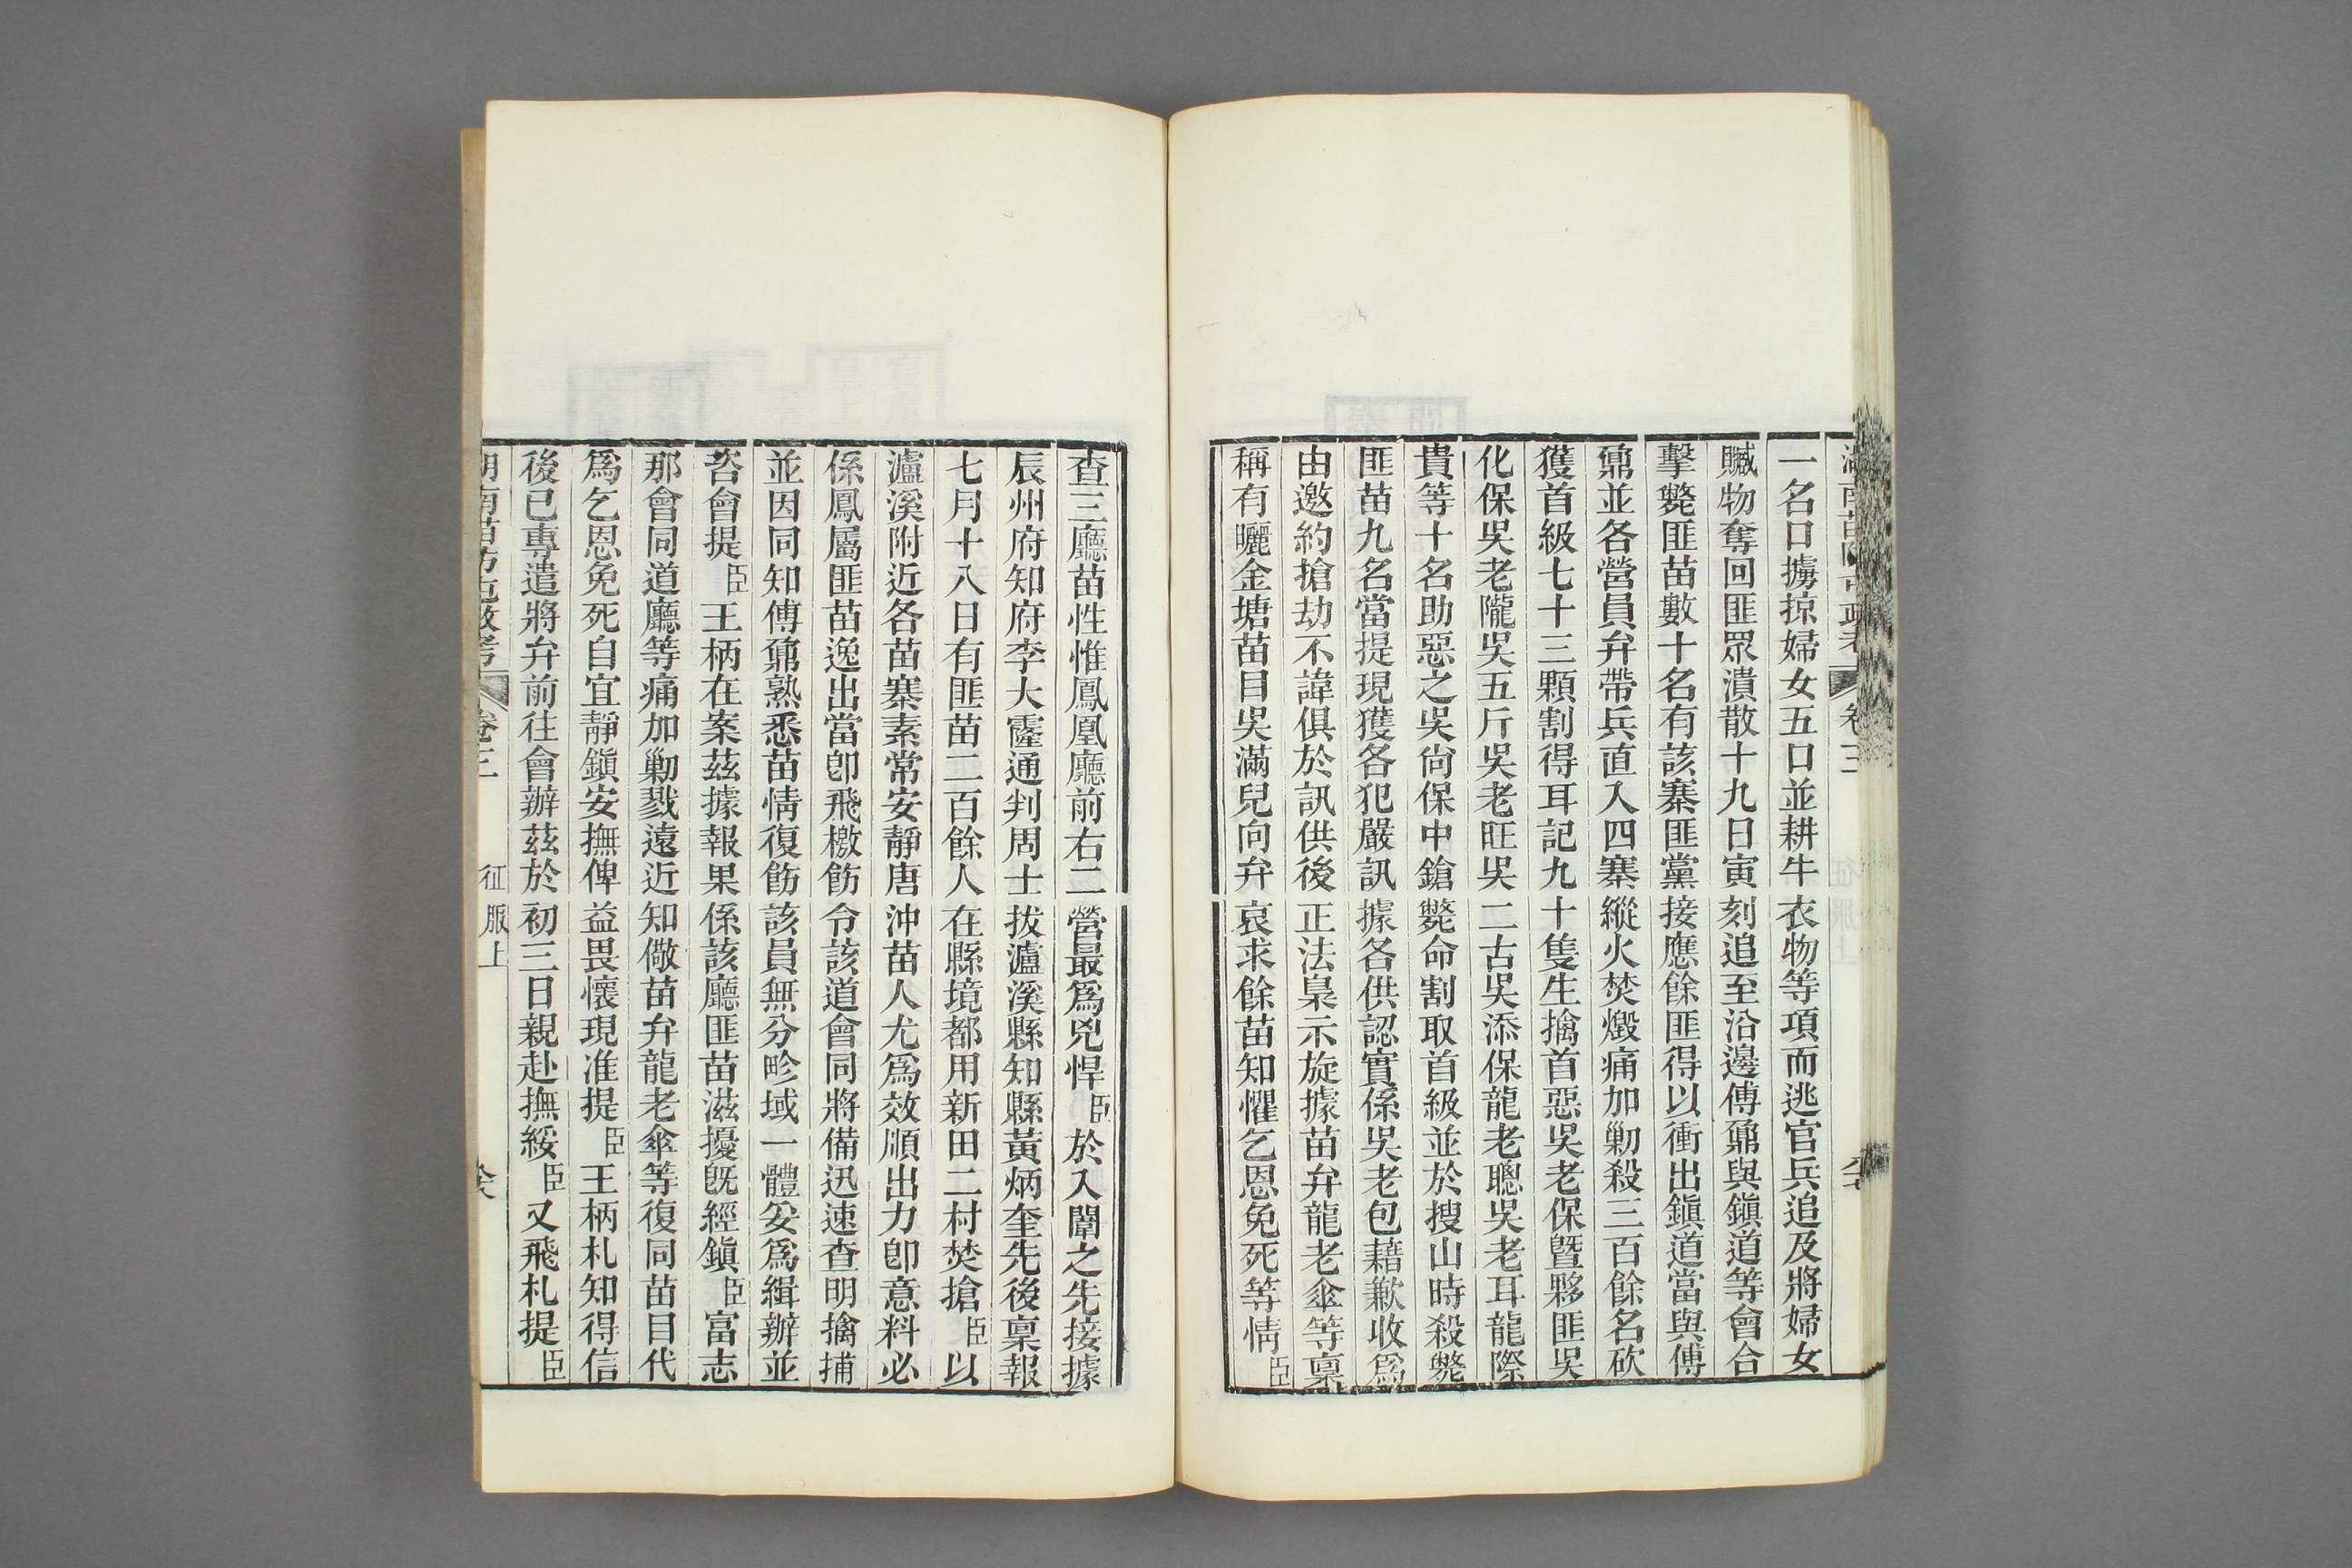 一名口擄掠婦女五口並耕牛衣物等項而逃官兵追及將婦女
贓物奪回匪眾潰散十九日寅刻追至沿邊傅鼐與鎭道等會合
擊斃匪苗數十名有該寨匪黨接應餘匪得以衝出鎭道當與傅
鼐並各營員弁帶兵直入四寨縱火焚燬痛加勦殺三百餘名砍
獲首級七十三顆割得耳記九十隻生擒首惡吳老保曁夥匪吳
化保吳老隴吳五斤吳老旺吳二古吳添保龍老聰吳老耳龍際
貴等十名助惡之吳尙保中鎗斃命割取首級並於搜山時殺斃
匪苗九名當提現獲各犯嚴訊據各供認實係吳老包藉歉收爲
由邀約搶劫不諱俱於訊供後正法梟示旋據苗弁龍老傘等稟
稱有曬金塘苗目吳滿兒向弁哀求餘苗知懼乞恩免死等情臣
查三廳苗性惟鳳凰廳前右二營最爲兇悍臣於入闈之先接據
辰州府知府李大霳通判周士拔瀘溪縣知縣黃炳奎先後稟報
七月十八日有匪苗二百餘人在縣境都用新田二村焚搶臣以
瀘溪附近各苗寨素常安靜唐沖苗人尤爲效順出力卽意料必
係鳳屬匪苗逸出當卽飛檄飭令該道會同將備迅速查明擒捕
並因同知傅鼐熟悉苗情復飭該員無分畛域一體妥爲緝辦並
咨會提臣王柄在案茲據報果係該廳匪苗滋擾旣經鎭臣富志
那會同道廳等痛加勦戮遠近知儆苗弁龍老傘等復同苗目代
爲乞恩免死自宜靜鎭安撫俾益畏懷現准提臣王柄札知得信
後已專遣將弁前往會辦茲於初三日親赴撫綏臣又飛札提臣
湖南苗防屯政考 卷三 征服上